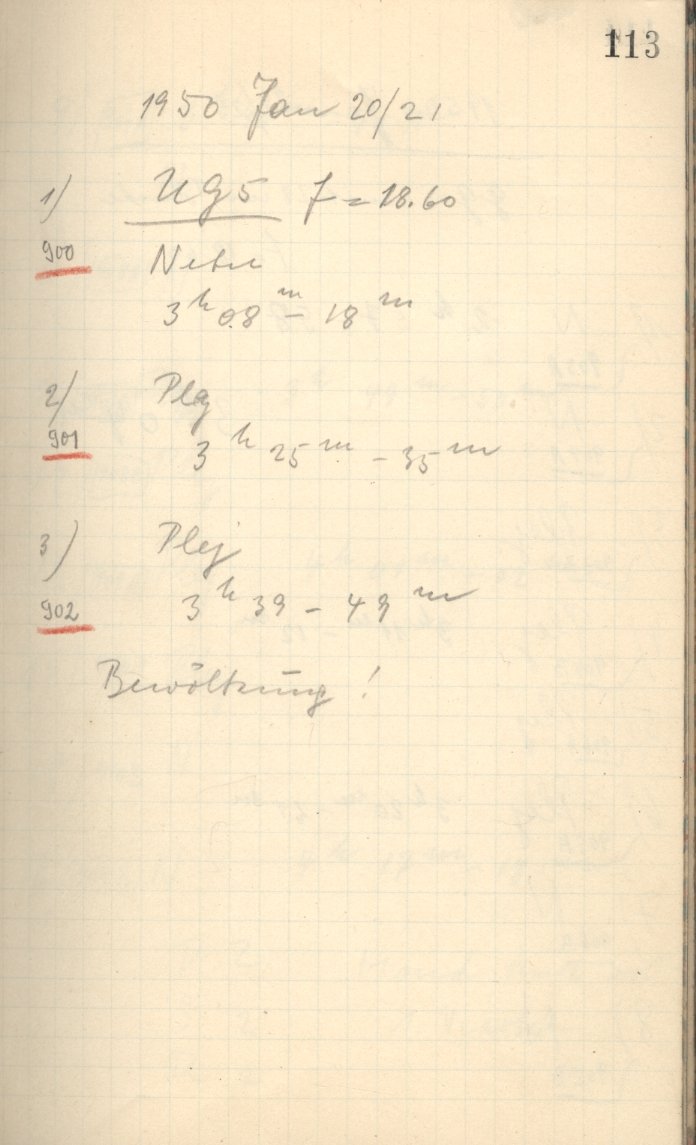 113
1950 Jan 20/21
1) UG5 f = 18.60
900 Nebel
3h 08m - 18m
2) Plej
901 3h 25m - 35m
3) Plej
902 3h 39 - 49m
Bewölkung!